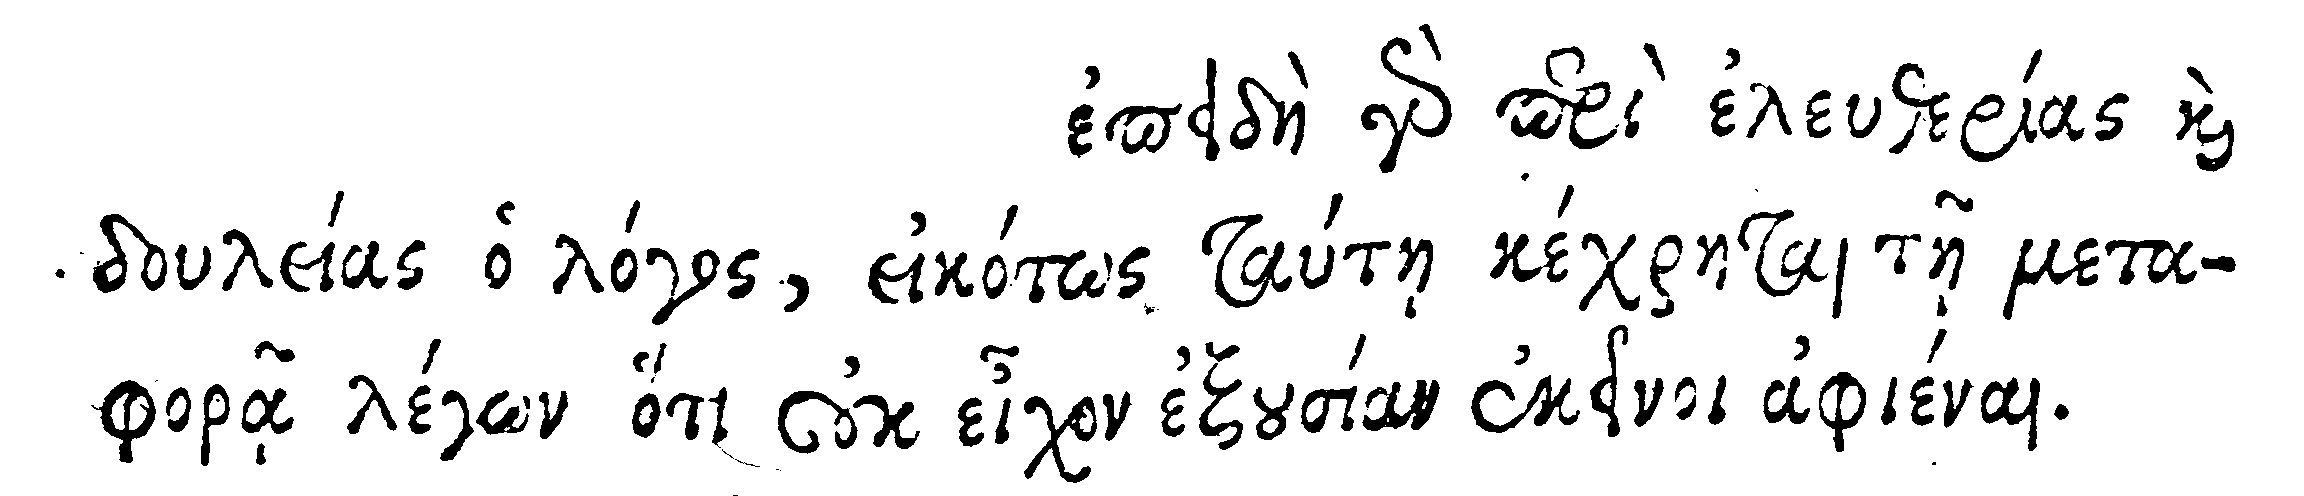 ἐπειδὴ γὰρ περὶ ἐλευθερίας καὶ
δουλείας ὁ λόγος, εἰκότως ταύτῃ κέχρηται τῇ μετα-
φορᾷ λέγων ὅτι οὐκ εἶχον ἐξουσίαν ἐκεῖνοι ἀφιέναι.